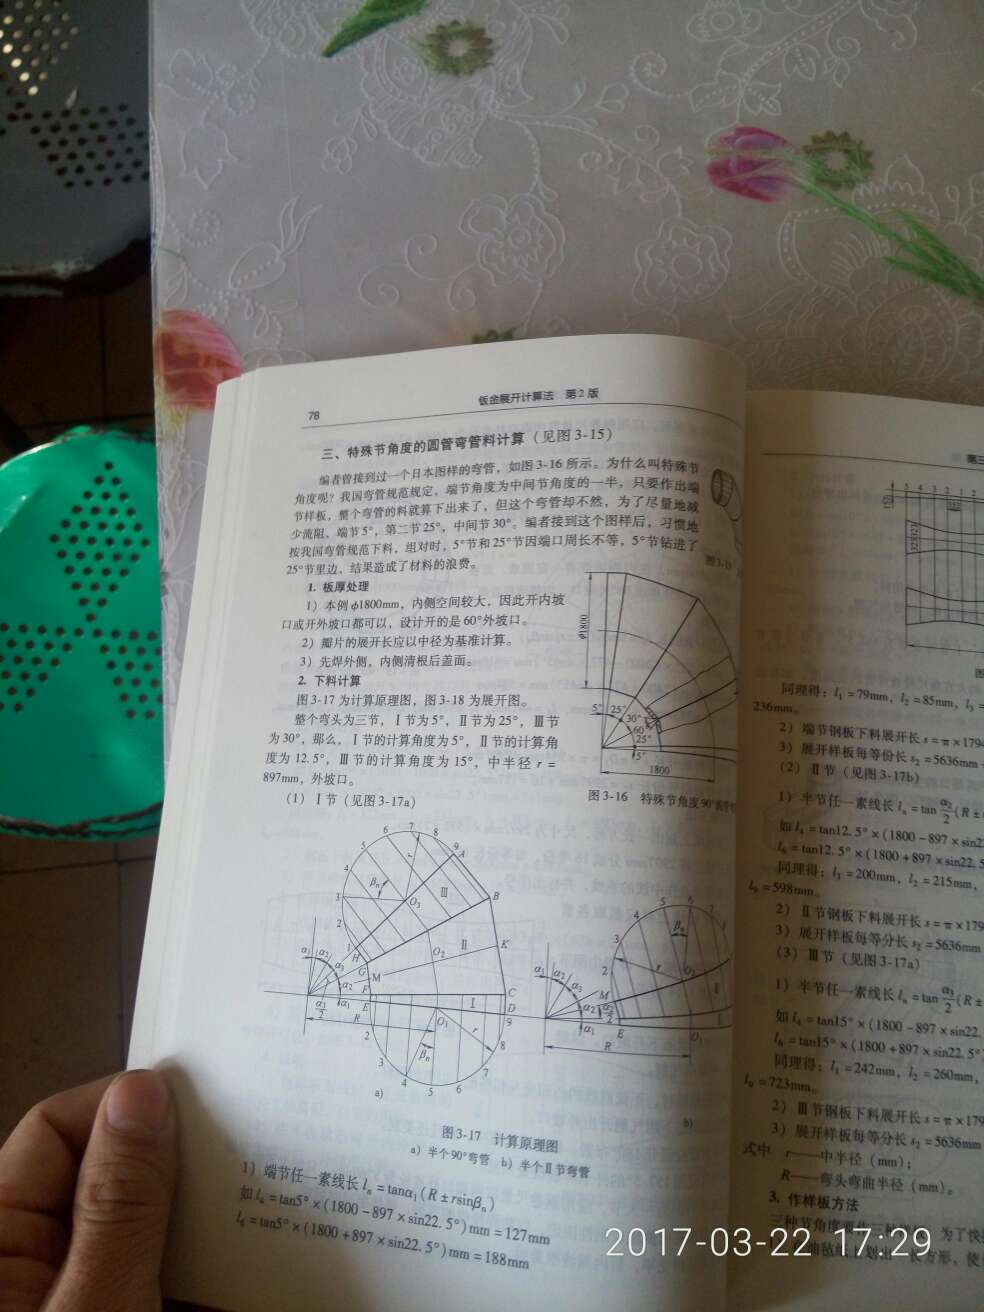 78
钣金展开计算法 第2版
三、特殊节角度的圆管弯管料计算(见图3-15)
编者曾接到过一个日本图样的弯管,如图3-16所示。为什么叫特殊节
角度呢?我国弯管规范规定,端节角度为中间节角度的一半,只要作出端
节样板,整个弯管的料就算下出来了,但这个弯管却不然,为了尽量地减
少流阻、端节5°,第二节25°,中间节30°。编者接到这个图样后,习惯地
按我国弯管规范下料,组对时,5°节和25°节因端口周长不等,5°节钻进了
25°节里边,结果造成了材料的浪费。
图3-15
1. 板厚处理
1)本例φ1800mm,内侧空间较大,因此开内坡
口或开外坡口都可以,设计开的是60°外坡口。
2)瓣片的展开长应以中径为基准计算。
3)先焊外侧,内侧清根后盖面。
2. 下料计算
图3-17为计算原理图,图3-18为展开图。
整个弯头为三节,Ⅰ节为5°,Ⅱ节为25°,Ⅲ节
为30°,那么,Ⅰ节的计算角度为5°,Ⅱ节的计算角
度为12.5°,Ⅲ节的计算角度为15°,中半径r=
897mm,外坡口。
(1)Ⅰ节(见图3-17a)
φ1800
5° 25°
30°
60°
25°
5°
1800
图3-16 特殊节角度90°
1 2 3 4 5 6 7 8 9
A B C D E F G H K M
O1 O2 O3
Ⅰ Ⅱ Ⅲ
α1 α2 α3
βn
R r
a)
b)
图3-17 计算原理图
a)半个90°弯管 b)半个Ⅱ节弯管
1)端节任一素线长ln=tanα1(R±rsinβn)
如l4=tan5°×(1800-897×sin22.5°)mm=127mm
l6=tan5°×(1800+897×sin22.5°)mm=188mm
第三
5 4 3 2 1 2
同理得:l1=79mm,l2=85mm,l3=
236mm。
2)端节钢板下料展开长s=π×179
3)展开样板每等份长s2=5636mm÷
(2)Ⅱ节(见图3-17b)
1)半节任一素线长ln=tan α2/2 (R±
如l4=tan12.5°×(1800-897×sin22
l6=tan12.5°×(1800+897×sin22.5
同理得:l1=200mm,l2=215mm,
l9=598mm。
2)Ⅱ节钢板下料展开长s=π×179
3)展开样板每等分长s2=5636mm
(3)Ⅲ节(见图3-17a)
1)半节任一素线长ln=tan α3/2 (R±
如l4=tan15°×(1800-897×sin22.
l6=tan15°×(1800+897×sin22.5°
同理得:l1=242mm,l2=260mm,
l9=723mm。
2)Ⅲ节钢板下料展开长s=π×179
3)展开样板每等分长s2=5636mm
式中 r——中半径(mm);
R——弯头弯曲半径(mm)。
3. 作样板方法
为了快
划出一长方形,使
2017-03-22 17:29